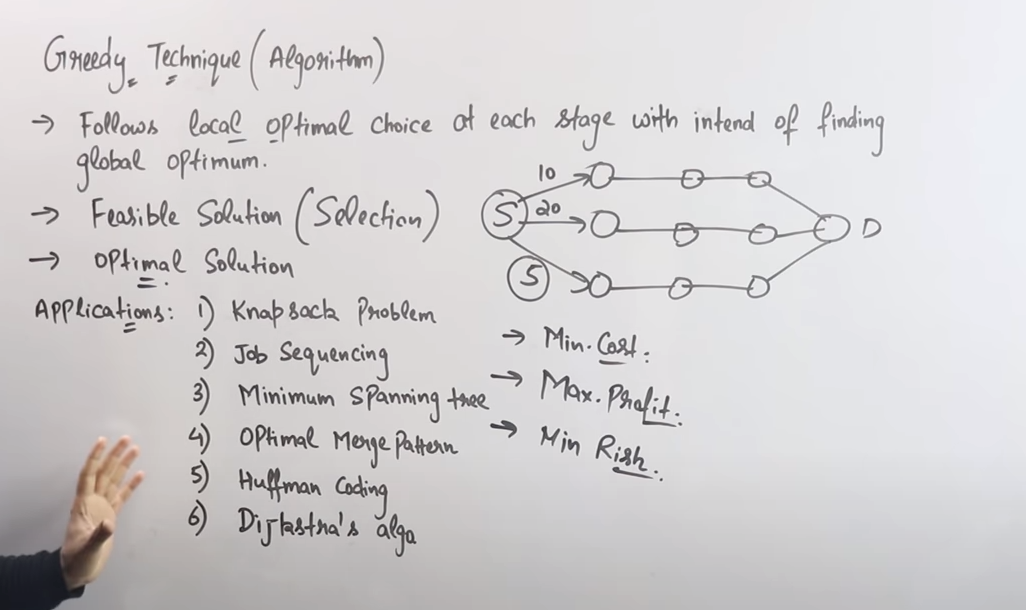 Greedy Technique (Algorithm)
→ Follows local optimal choice at each stage with intend of finding
global optimum.
→ Feasible Solution (Selection)
→ optimal Solution
Applications: 1) Knapsack Problem
2) Job Sequencing
3) Minimum spanning tree
4) Optimal Merge Pattern
5) Huffman Coding
6) Dijkstra's algo
10
S 20 D
5
→ Min. Cost.
→ Max. Profit.
→ Min Risk.